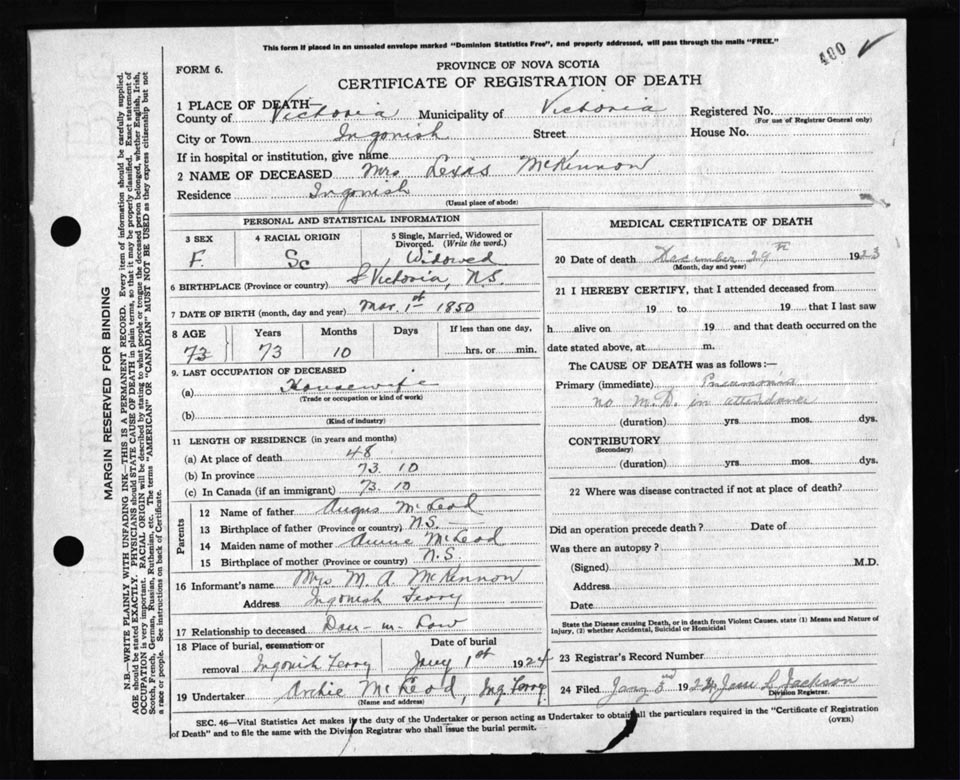 This form if placed in an unsealed envelope marked "Dominion Statistics Free", and properly addressed, will pass through the mails "FREE."
400
FORM 6.
PROVINCE OF NOVA SCOTIA
CERTIFICATE OF REGISTRATION OF DEATH
1 PLACE OF DEATH—
County of Victoria Municipality of Victoria Registered No.
(For use of Registrar General only)
City or Town Ingonish Street House No.
If in hospital or institution, give name
2 NAME OF DECEASED Mrs Lexas McKennon
Residence Ingonish
(Usual place of abode)
PERSONAL AND STATISTICAL INFORMATION
3 SEX 4 RACIAL ORIGIN 5 Single, Married, Widowed or Divorced. (Write the word.)
F. Sc Widowed
6 BIRTHPLACE (Province or country) Victoria, N.S.
7 DATE OF BIRTH (month, day and year) Mar. 1st 1850
8 AGE Years Months Days If less than one day,
73 73 10 hrs. or min.
9. LAST OCCUPATION OF DECEASED
(a) Housewife
(Trade or occupation or kind of work)
(b)
(Kind of industry)
11 LENGTH OF RESIDENCE (in years and months)
(a) At place of death 48
(b) In province 73. 10
(c) In Canada (if an immigrant) 73. 10
Parents
12 Name of father Angus McLeod
13 Birthplace of father (Province or country) N.S.
14 Maiden name of mother Annie McLeod
15 Birthplace of mother (Province or country) N.S
16 Informant's name Mrs M. A. McKennon
Address Ingonish Ferry
17 Relationship to deceased Dau-in-Low
18 Place of burial, cremation or removal Ingonish Ferry Date of burial Jany 1st 1924
19 Undertaker Archie McLeod, Ing Ferry
(Name and address)
MEDICAL CERTIFICATE OF DEATH
20 Date of death December 29th 1923
(Month, day and year)
21 I HEREBY CERTIFY, that I attended deceased from
19 to 19 that I last saw
h alive on 19 and that death occurred on the
date stated above, at m.
The CAUSE OF DEATH was as follows:—
Primary (immediate) Pneumonia
no M.D. in attendance
(duration) yrs. mos. dys.
CONTRIBUTORY
(Secondary)
(duration) yrs. mos. dys.
22 Where was disease contracted if not at place of death?
Did an operation precede death? Date of
Was there an autopsy?
(Signed) M.D.
Address
Date
State the Disease causing Death, or in death from Violent Causes, state (1) Means and Nature of
Injury, (2) whether Accidental, Suicidal or Homicidal
23 Registrar's Record Number
24 Filed Jany 3rd 1924 L Jackson
Division Registrar.
SEC. 46—Vital Statistics Act makes it the duty of the Undertaker or person acting as Undertaker to obtain all the particulars required in the "Certificate of Registration
of Death" and to file the same with the Division Registrar who shall issue the burial permit.
(OVER)
MARGIN RESERVED FOR BINDING
N.B.—WRITE PLAINLY WITH UNFADING INK—THIS IS A PERMANENT RECORD. Every item of information should be carefully supplied.
AGE should be stated EXACTLY. PHYSICIANS should STATE CAUSE OF DEATH in plain terms, so that it may be properly classified. Exact statement of
OCCUPATION is very important. RACIAL ORIGIN will be described by stating to what people or tongue the deceased person belonged, whether English, Irish,
Scotch, French, German, Russian, Ruthenian, etc. The terms "AMERICAN" OR "CANADIAN" MUST NOT BE USED as they express citizenship but not
a race or people. See instructions on back of Certificate.